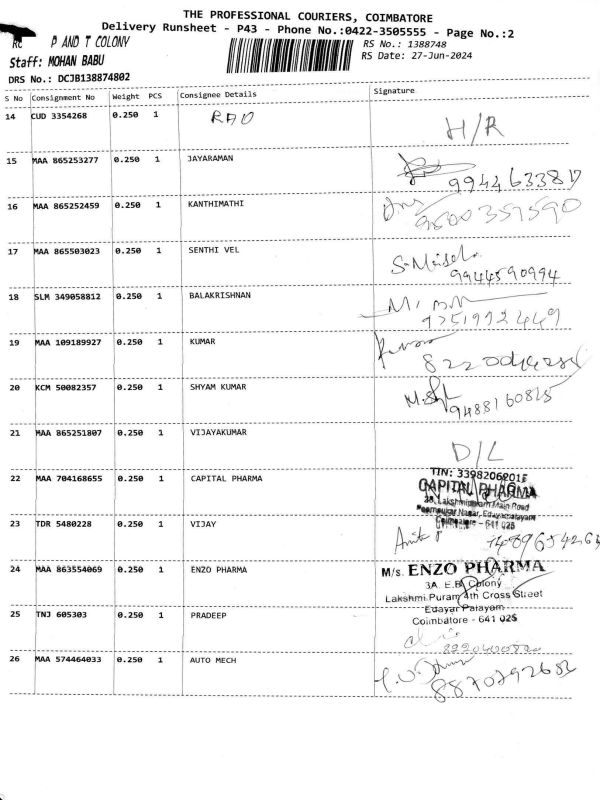 THE PROFESSIONAL COURIERS, COIMBATORE
Delivery Runsheet - P43 - Phone No.:0422-3505555 - Page No.:2
P AND T COLONY
RS No.: 1388748
Staff: MOHAN BABU
RS Date: 27-Jun-2024
DRS No.: DCJB138874802
S No Consignment No Weight PCS Consignee Details Signature
14 CUD 3354268 0.250 1 RAO H/R
15 MAA 865253277 0.250 1 JAYARAMAN
16 MAA 865252459 0.250 1 KANTHIMATHI 9500359590
17 MAA 865503023 0.250 1 SENTHI VEL 9944590994
18 SLM 349058812 0.250 1 BALAKRISHNAN 9751992449
19 MAA 109189927 0.250 1 KUMAR
20 KCM 50082357 0.250 1 SHYAM KUMAR
21 MAA 865251807 0.250 1 VIJAYAKUMAR D/L
22 MAA 704168655 0.250 1 CAPITAL PHARMA
TIN: 33982062015
CAPITAL PHARMA
28, Lakshmipuram Main Road
Poompugar Nagar, Edayarpalayam
Coimbatore - 641 025
23 TDR 5480228 0.250 1 VIJAY
24 MAA 863554069 0.250 1 ENZO PHARMA
M/s. ENZO PHARMA
3A, E.B. Colony
Lakshmi Puram 4th Cross Street
Edayar Palayam
Coimbatore - 641 025
25 TNJ 605303 0.250 1 PRADEEP
26 MAA 574464033 0.250 1 AUTO MECH